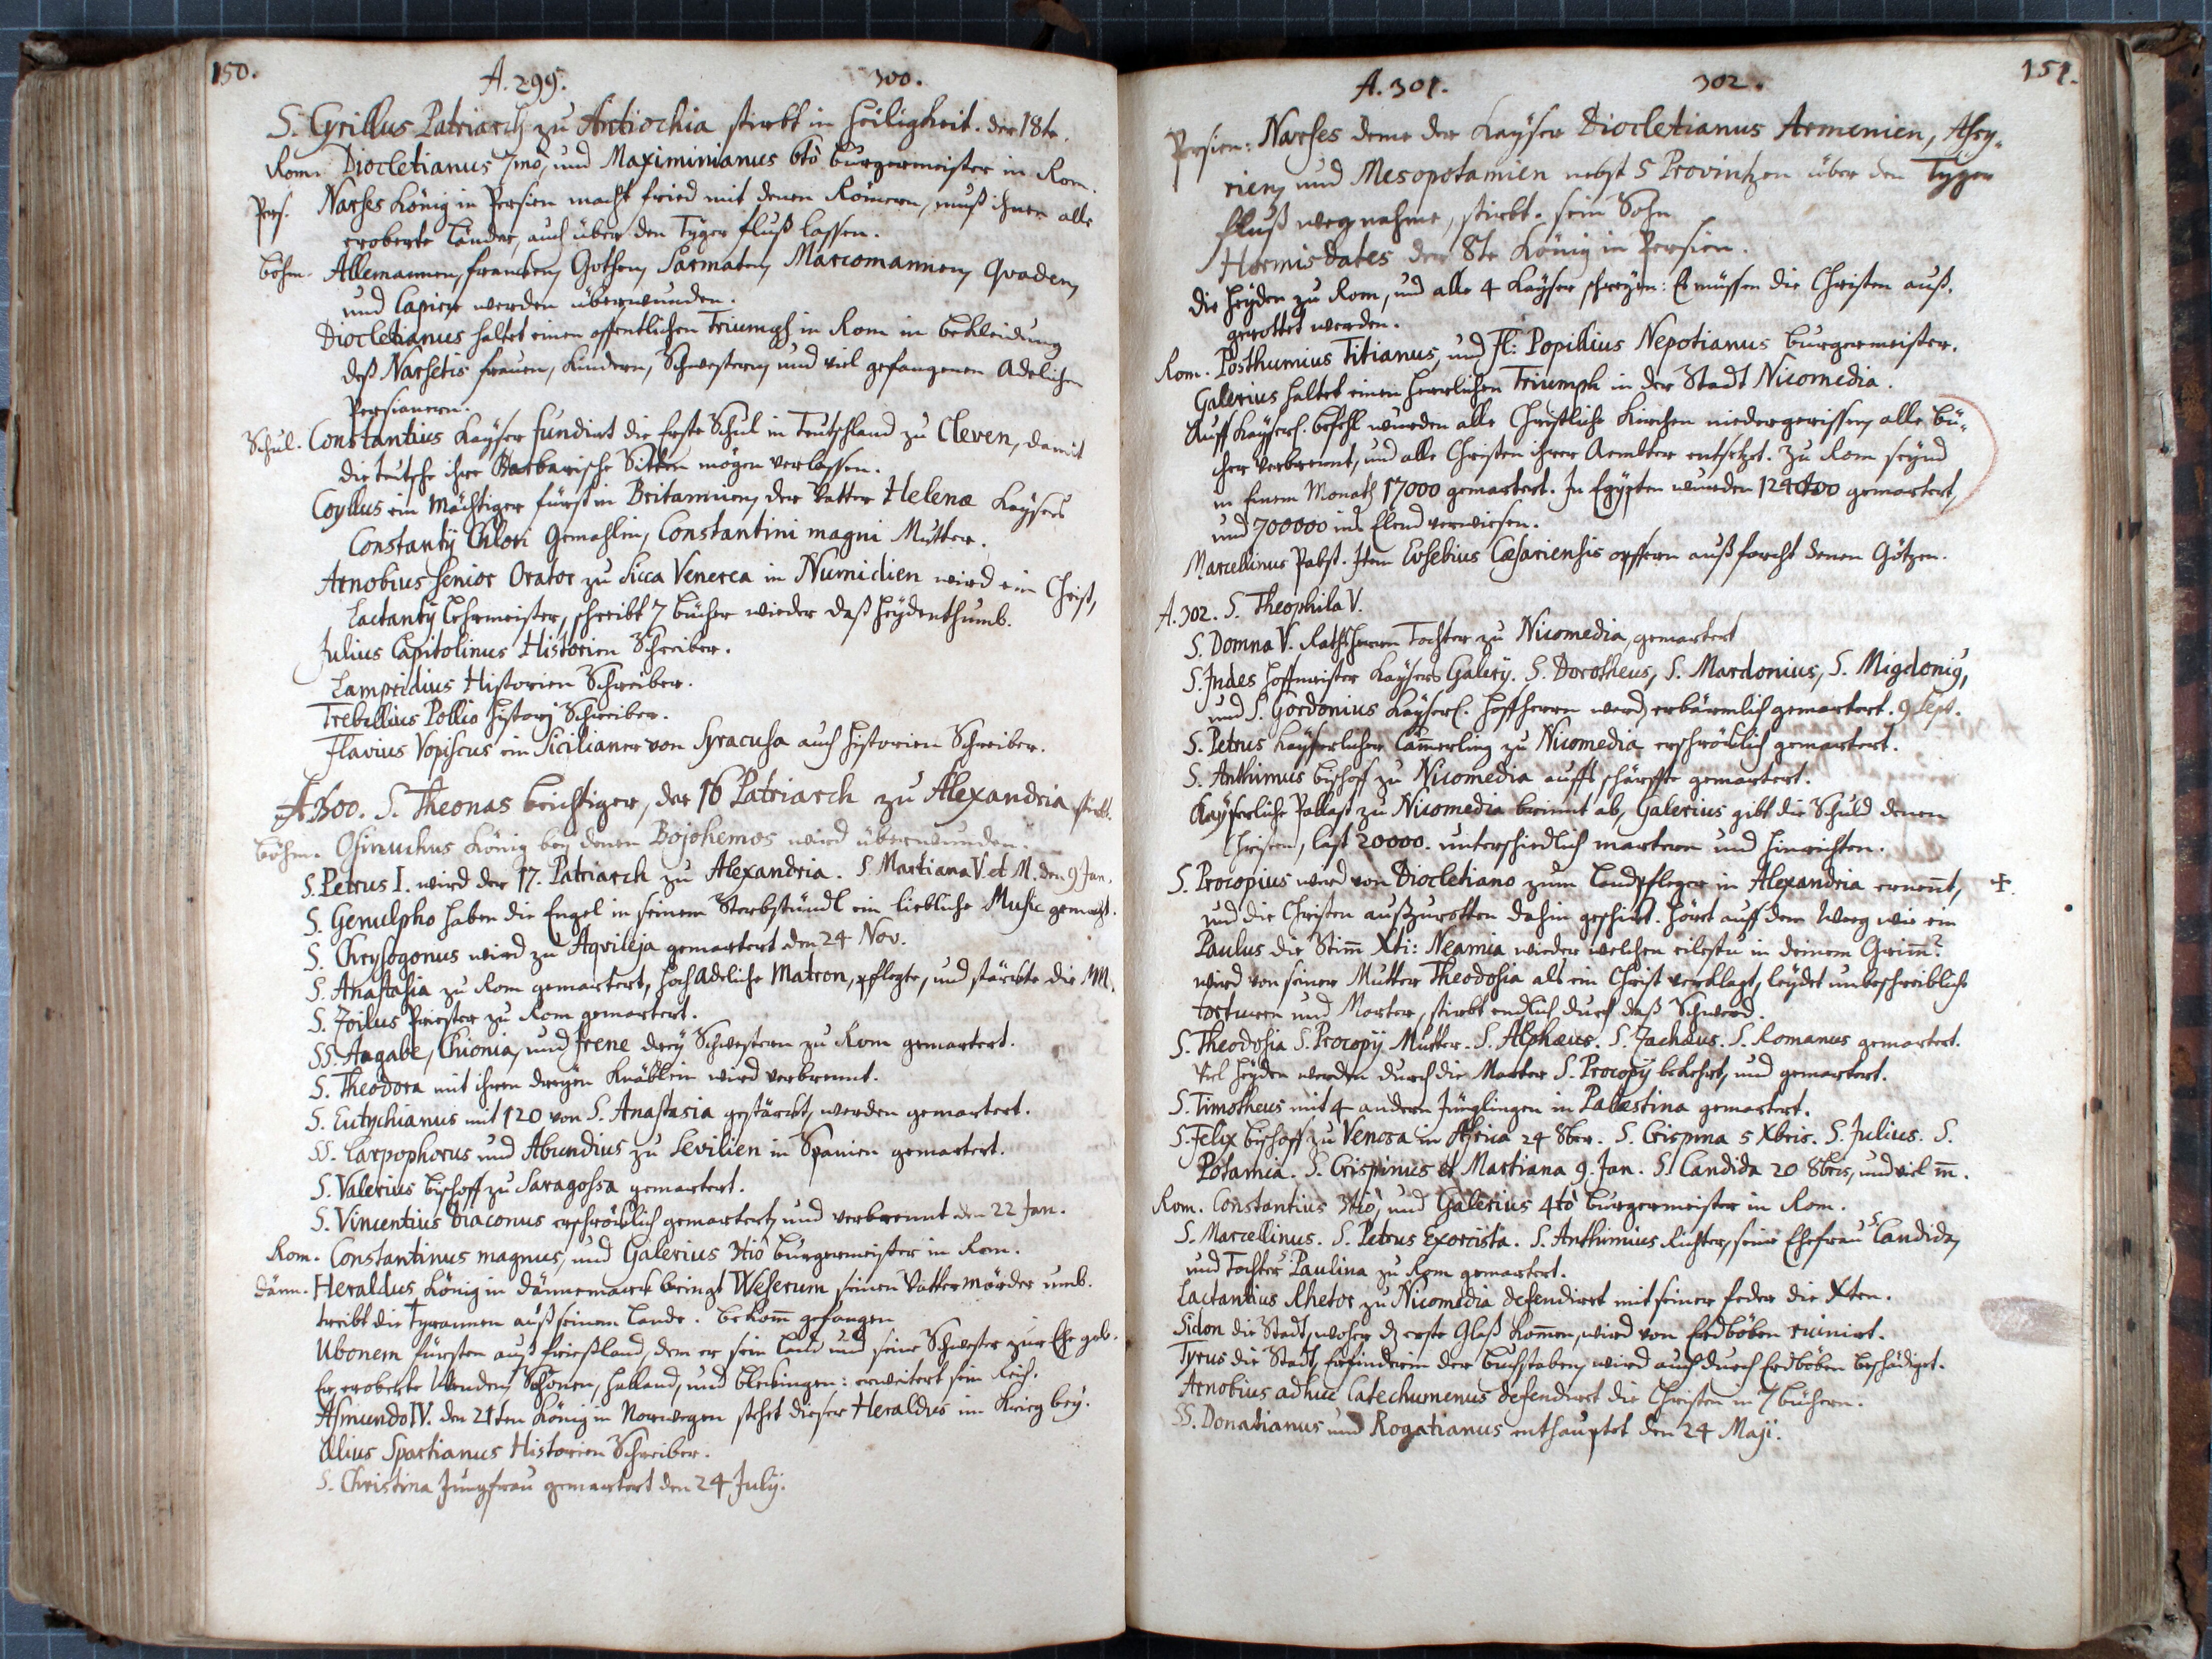 150.
A. 299. 300.
S. Cyrillus Patriarch zu Antiochia stirbt in Heiligkeit. der 18te.
Rom. Diocletianus 7mò, und Maximinianus 6tò burgermeister in Rom.
Pers. Narses König in Persien macht fried mit denen Römern, muß ihnen alle
eroberte Länder, auch über den Tyger fluß lassen.
böhm. Allemannen, francken, Gothen, Sarmaten, Marcomannen, Quaden,
und Capier werden überwunden.
Diocletianus haltet einen offentlichen Triumph in Rom in bekleidung
deß Narsetis frauen, Kindern, Schwestern, und viel gefangenen Adelichen
Persianern.
Schul. Constantius Kayser fundirt die Erste Schul in Teutschland zu Cleven, damit
die teutsche ihre Barbarische Sitten mögen verlassen.
Coyllus ein Mächtiger fürst in Britannien, der Vatter Helenæ Kaysers
Constantÿ Chlori Gemahlin, Constantini magni Mutter.
Arnobius senior Orator zu Sicca Venerea in Numidien wird ein Christ,
Lactantÿ Lehrmeister, schreibt 7 bücher wieder daß Heydenthumb.
Julius Capitolinus Historien Schreiber.
Lampridius Historien Schreiber.
Trebellius Pollio History Schreiber.
Flavius Vopiscus ein Sicilianer von Syracusa auch Historien Schreiber.
A 300. S. Theonas beichtiger, der 16 Patriarch zu Alexandria stirbt.
böhm. Osmuchus König bey denen Bojohemos wird überwunden.
S. Petrus I. wird der 17. Patriarch zu Alexandria. S. Martiana V. et M. den 9 Jan.
S. Genulpho haben die Engel in seinem Sterbstündl ein liebliche Music gemacht.
S. Chrysogonus wird zu Aqvileja gemartert den 24 Nov.
S. Anastasia zu Rom gemartert, hoch Adeliche Matron, pflegte, und stärckte die MM.
S. Zoilus Priester zu Rom gemartert.
SS. Aagabe, Chionia, und Irene drey Schwestern zu Rom gemartert.
S. Theodora mit ihren dreyen Knäblein wird verbrennt.
S. Eutychianus mit 120 von S. Anastasia gestärckt, werden gemartert.
SS. Carpophorus und Abundius zu Sevilien in Spanien gemartert.
S. Valerius bischoff zu Saragossa gemartert.
S. Vincentius Diaconus erschröcklich gemartert, und verbrennt den 22 Jan.
Rom. Constantinus magnus, und Galerius 3tiò burgermeister in Rom.
Dänn. Heraldus König in Dännemarck bringt Weserum seinen Vatter Mörder umb.
treibt die Tyrannen auß seinem Lande. bekom̄ gefangen
Ubonem fürsten auß frießland, dem er sein Land und seine Schwester zur Ehe geb.
Er eroberte Wenden, Schonen, Halland, und Bleckingen: erweitert sein Reich.
Asmundo IV. den 21ten König in Norwegen stehet dieser Heraldus im Krieg bey.
Ælius Spartianus Historien Schreiber.
S. Christina Jungfrau gemartert den 24 July.
151.
A. 301. 302.
Persien: Narses deme der Kayser Diocletianus Armenien, Assy-
rien, und Mesopotamien nebst 5 Provintzen über den Tyger
fluß wegnahme, stirbt. sein Sohn
Hormisdates der 8te König in Persien.
die Heyden zu Rom, und alle 4 Kayser schreyen: Es müssen die Christen auß-
gerottet werden.
Rom. Posthumius Titianus, und Fl: Popilius Nepotianus burgermeister.
Galerius haltet einen Herrlichen Triumph in der Stadt Nicomedia.
Auff Kayserl. befehl wurden alle Christliche Kirchen niedergerissen, alle bü-
cher verbrennt, und alle Christen ihrer Aembter entsetzt. Zu Rom seynd
in Einem Monath 17000 gemartert. In Egypten wurden 124000 gemartert,
und 700000 ins Elend verwiesen.
Marcellinus Pabst. Item Eusebius Cæsariensis opffern auß forcht denen Götzen.
A. 302. S. Theophila V.
S. Domna V. Rathsherrn Tochter zu Nicomedia, gemartert
S. Indes Hoffmeister Kaysers Galerÿ. S. Dorotheus, S. Mardonius, S. Migdoniꝰ,
und S. Gordonius Kayserl. Hoffherrn werden erbärmlich gemartert. 9 Sept.
S. Petrus Kayserlicher Cam̄erling zu Nicomedia erschröcklich gemartert.
S. Anthimus bischoff zu Nicomedia auffs schärffste gemartert.
Kayserliche Pallast zu Nicomedia brinnt ab, Galerius gibt die Schuld denen
Christen, last 20000. unterschiedlich martern und hinrichten.
S. Procopius werd von Diocletiano zum Landpfleger in Alexandria ernen̄t, ✢.
und die Christen außzurotten dahin geschickt. Hört auff dem Weeg wie ein
Paulus die Stim̄ Xti: Neamia wieder welchen eilestu in deinem Grim̄?
wird von seiner Mutter Theodosia als ein Christ verklagt, leydet unbeschreibliche
torturen und Marter, stirbt endlich durch daß Schwerd.
S. Theodosia S. Procopÿ Mutter. S. Alphæus. S. Zachæus. S. Romanus gemartert.
Viel Heyden werden durch die Marter S. Procopÿ bekehrt, und gemartert.
S. Timotheus mit 4 andern Jünglingen in Palæstina gemartert.
S. Felix bischoff zu Venosa in Africa 24 8ber. S. Crispina 5 Xbris. S. Julius. S.
Potamia. S. Crispinus et Martiana 9. Jan. S. Candida 20 8bris, und viel m̄.
Rom. Constantius 3tiò, und Galerius 4tò burgermeister in Rom.
S. Marcellinus. S. Petrus Exorcista. S. Anthimius Richter, seine Ehefrau S Candida,
und Tochter S Paulina zu Rom gemartert.
Lactantius Rhetor zu Nicomedia defendirt mit seiner feder die Xten.
Sidon die Stadt, woher dz erste Glaß kom̄en, wird von Erdböben ruinirt.
Tyrus die Stadt, Erfinderin der buchstaben, wird auch durch Erdböben beschädiget.
Arnobius adhuc Catechumenus defendirt die Christen in 7 büchern.
SS. Donatianus und Rogatianus enthauptet den 24 Maji.